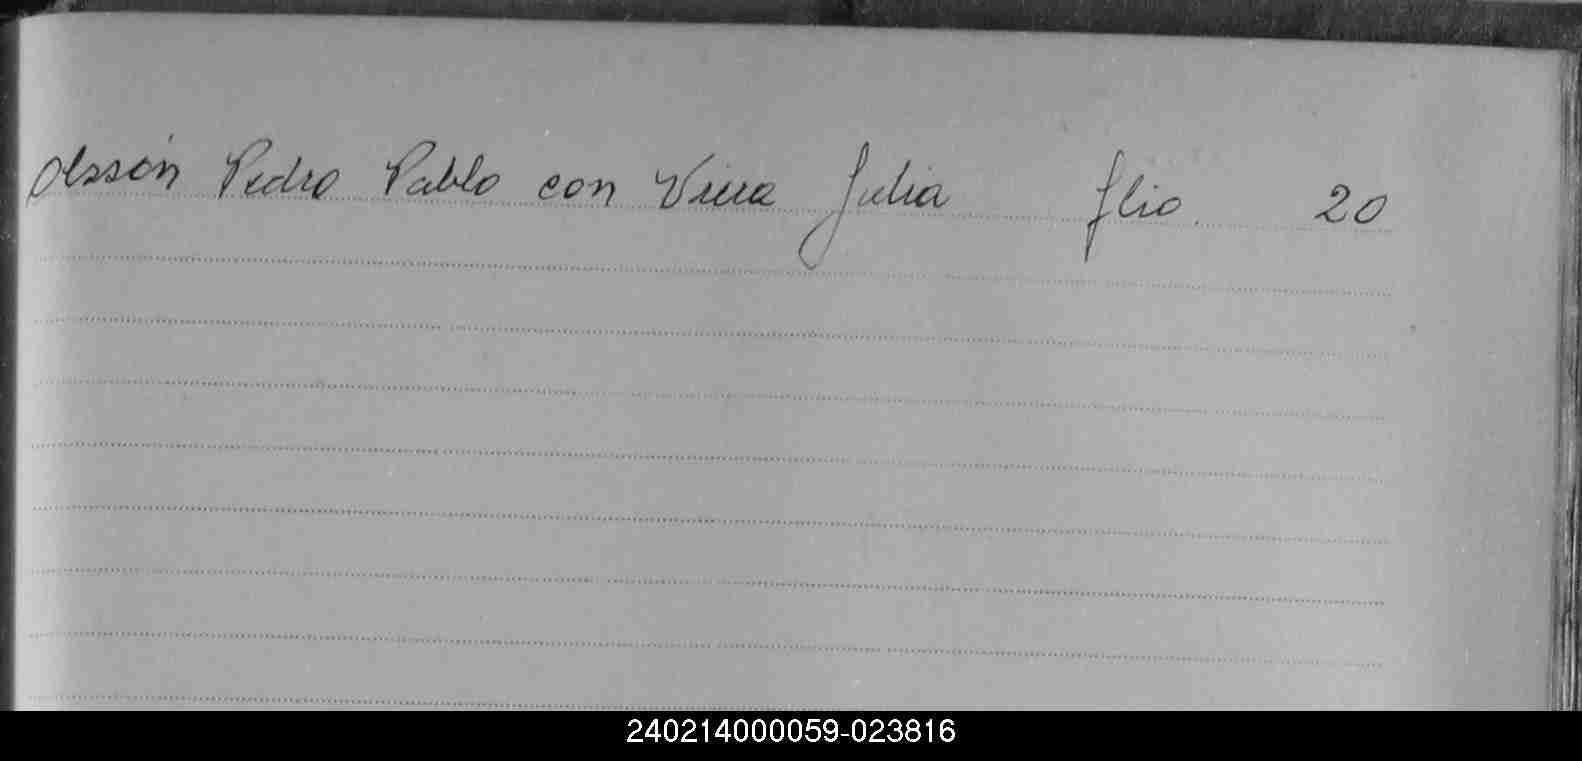 Olssón Pedro Pablo con Viera Julia flio. 20
240214000059-023816